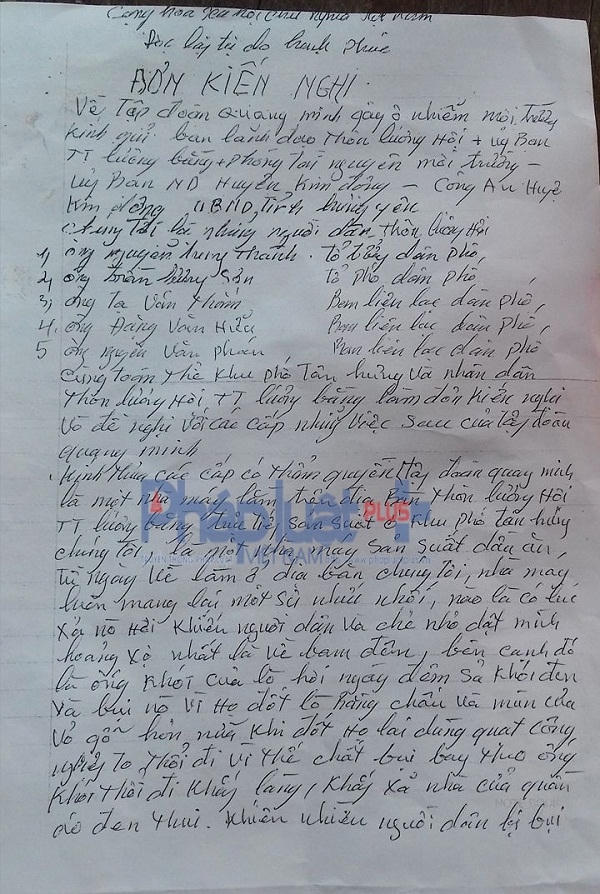 Cộng hòa xã hội chủ nghĩa Việt Nam
Độc lập tự do hạnh phúc
ĐƠN KIẾN NGHỊ
Về Tập đoàn Quang minh gây ô nhiễm môi trường
Kính gửi: ban lãnh đạo thôn lương Hội + Uỷ Ban
TT lương bằng + phòng tài nguyên môi trường -
Uỷ Ban ND Huyện Kim động - Công An Huyện
Kim động UBND Tỉnh hưng yên
Chúng Tôi là những người dân thôn lương Hội
1, ông nguyễn hưng Thành. Tổ trưởng dân phố,
2, ông trần hưng Sản Tổ phó dân phố,
3, ông Tạ Văn Thăm Ban liên lạc dân phố,
4. ông Đặng Văn Hiểu Ban liên lạc dân phố,
5 ông nguyễn Văn phán Ban liên lạc dân phố
cùng toàn thể khu phố Tân hưng và nhân dân
Thôn lương Hội TT lương bằng làm đơn kiến nghị
Và đề nghị với các cấp những việc sau của tập đoàn
quang minh
Kính thưa các cấp có thẩm quyền tập đoàn quang minh
là một nhà máy làm trên địa bàn Thôn lương Hội
TT lương bằng trực tiếp sản suất ở khu phố tân hưng
chúng tôi, là một nhà máy sản suất dầu ăn,
từ ngày về làm ở địa bàn chúng tôi, nhà máy
luôn mang lại một sự nhức nhối, nào là có lúc
xả nồ Hơi khiến người dân và chẻ nhỏ dật mình
hoảng sợ nhất là về ban đêm, bên cạnh đó
là ống khói của lò hơi ngày đêm sả khói đen
và bụi nồ vì Họ đốt lò bằng chấu và mùn cưa
vỏ gỗ hơn nữa khi đốt Họ lại dùng quạt công
nghiệp to thổi đi vì thế chất bụi bay theo ống
khói thổi đi khắp làng, khắp xả nhà cửa quần
áo đen thui. Khiến nhiều người dân bị bụi
Pháp luật PLUS
VIỆT NAM